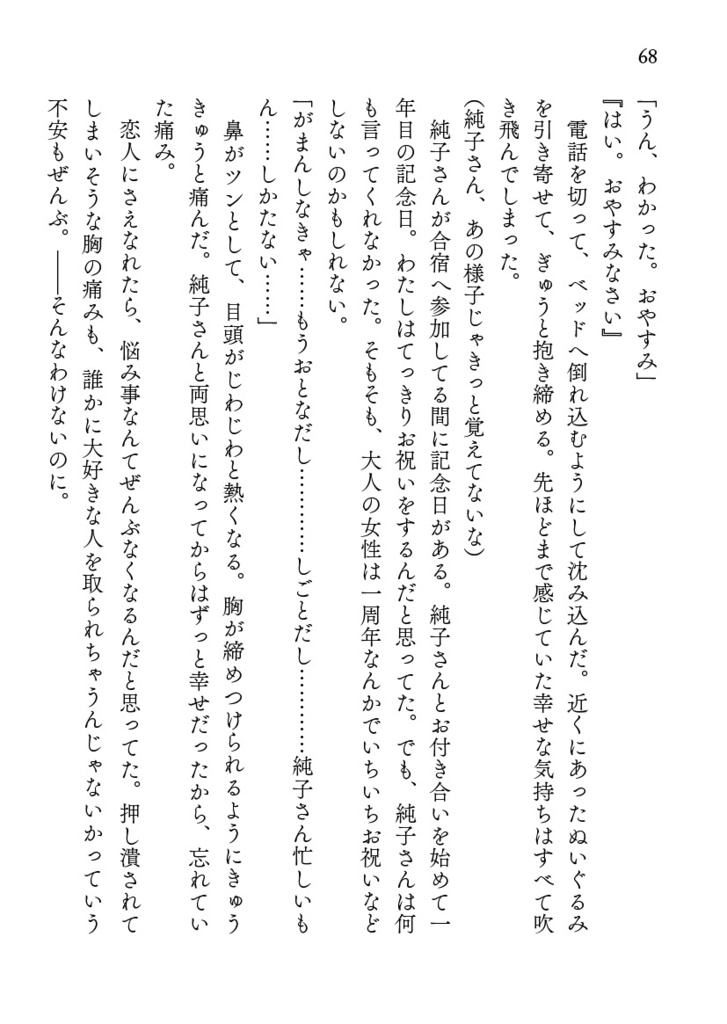 68
「うん、わかった。おやすみ」
『はい。おやすみなさい』
　電話を切って、ベッドへ倒れ込むようにして沈み込んだ。近くにあったぬいぐるみ
を引き寄せて、ぎゅうと抱き締める。先ほどまで感じていた幸せな気持ちはすべて吹
き飛んでしまった。
（純子さん、あの様子じゃきっと覚えてないな）
　純子さんが合宿へ参加してる間に記念日がある。純子さんとお付き合いを始めて一
年目の記念日。わたしはてっきりお祝いをするんだと思ってた。でも、純子さんは何
も言ってくれなかった。そもそも、大人の女性は一周年なんかでいちいちお祝いなど
しないのかもしれない。
「がまんしなきゃ……もうおとなだし…………しごとだし…………純子さん忙しいも
ん……しかたない……」
　鼻がツンとして、目頭がじわじわと熱くなる。胸が締めつけられるようにきゅう
きゅうと痛んだ。純子さんと両思いになってからはずっと幸せだったから、忘れてい
た痛み。
　恋人にさえなれたら、悩み事なんてぜんぶなくなるんだと思ってた。押し潰されて
しまいそうな胸の痛みも、誰かに大好きな人を取られちゃうんじゃないかっていう
不安もぜんぶ。――そんなわけないのに。